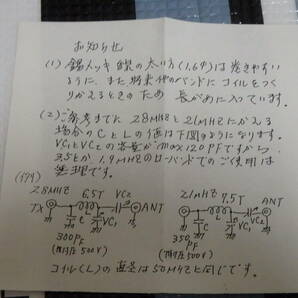 お知らせ
(1) 錫メッキ線の太い方(1.6φ)は巻きやすい
ように、また将来他のバンドにコイルをつく
りかえるときのため 長がめに入っています。
(2) ご参考までに 28MHZと21MHZにかえる
場合のCとLの値は下図のようになります。
VC1とVC2の容量がmax120PFですから
3.5とか1.9MHZのローバンドでのご使用は
無理です。
(例)
28MHZ 6,5T VC2
TX L ANT
C VC1
300PF
(耐圧500V)
21MHZ 7,5T
VC2 ANT
L
C VC1
350PF
(耐圧500V)
コイル(L)の直径は50MHZと同じです。